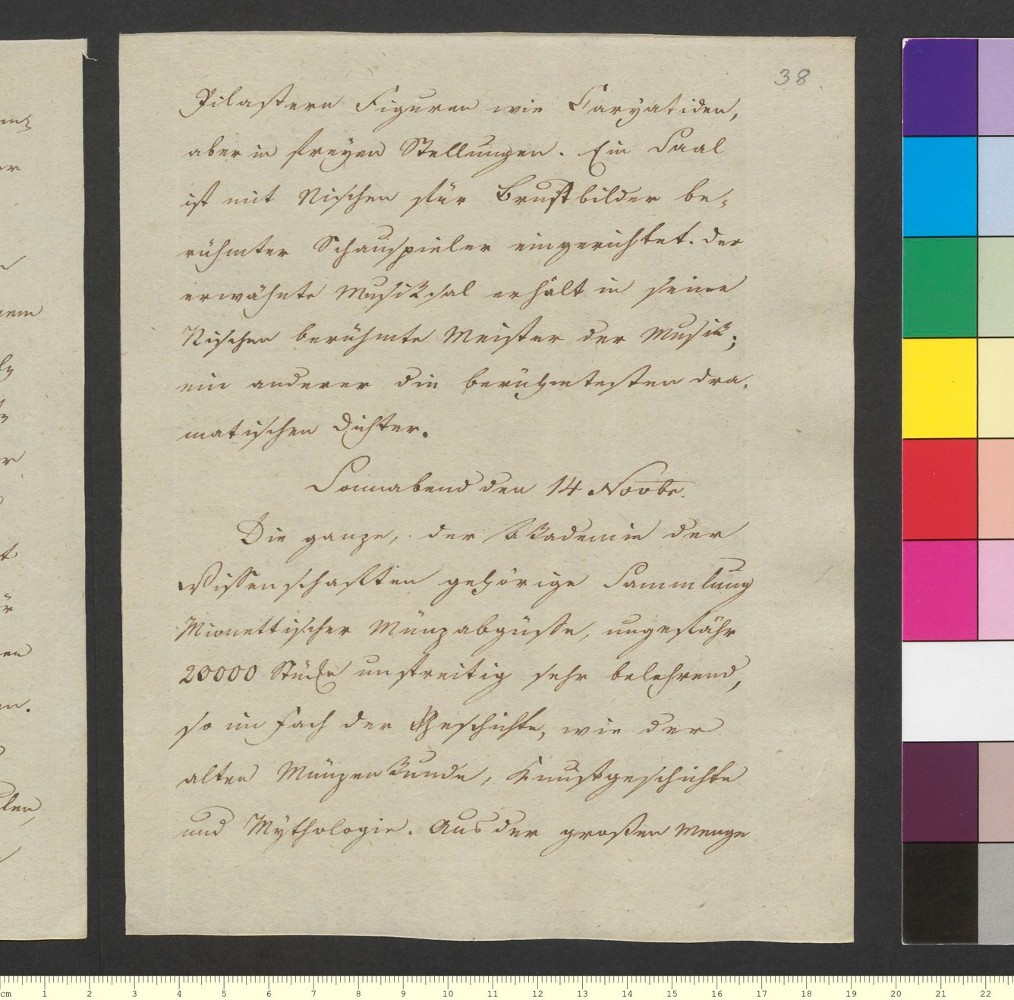 38.
Pilastern Figuren wie Caryatiden,
aber in freyen Stellungen. Ein Saal
ist mit Nischen für Brustbilder be-
rühmter Schauspieler eingerichtet. Der
erwähnte Musiksal erhält in seine
Nischen berühmte Meister der Musik;
ein anderer die berühmtesten dra-
matischen Dichter.
Sonnabend den 14 Novbr.
Die ganze, der Akademie der
Wissenschaften gehörige Sammlung
Mionettischer Münzabgüsse, ungefähr
20000 Stücke unstreitig sehr belehrend,
so im Fach der Geschichte, wie der
alten Münzenkunde, Kunstgeschichte
und Mythologie. Aus der großen Menge